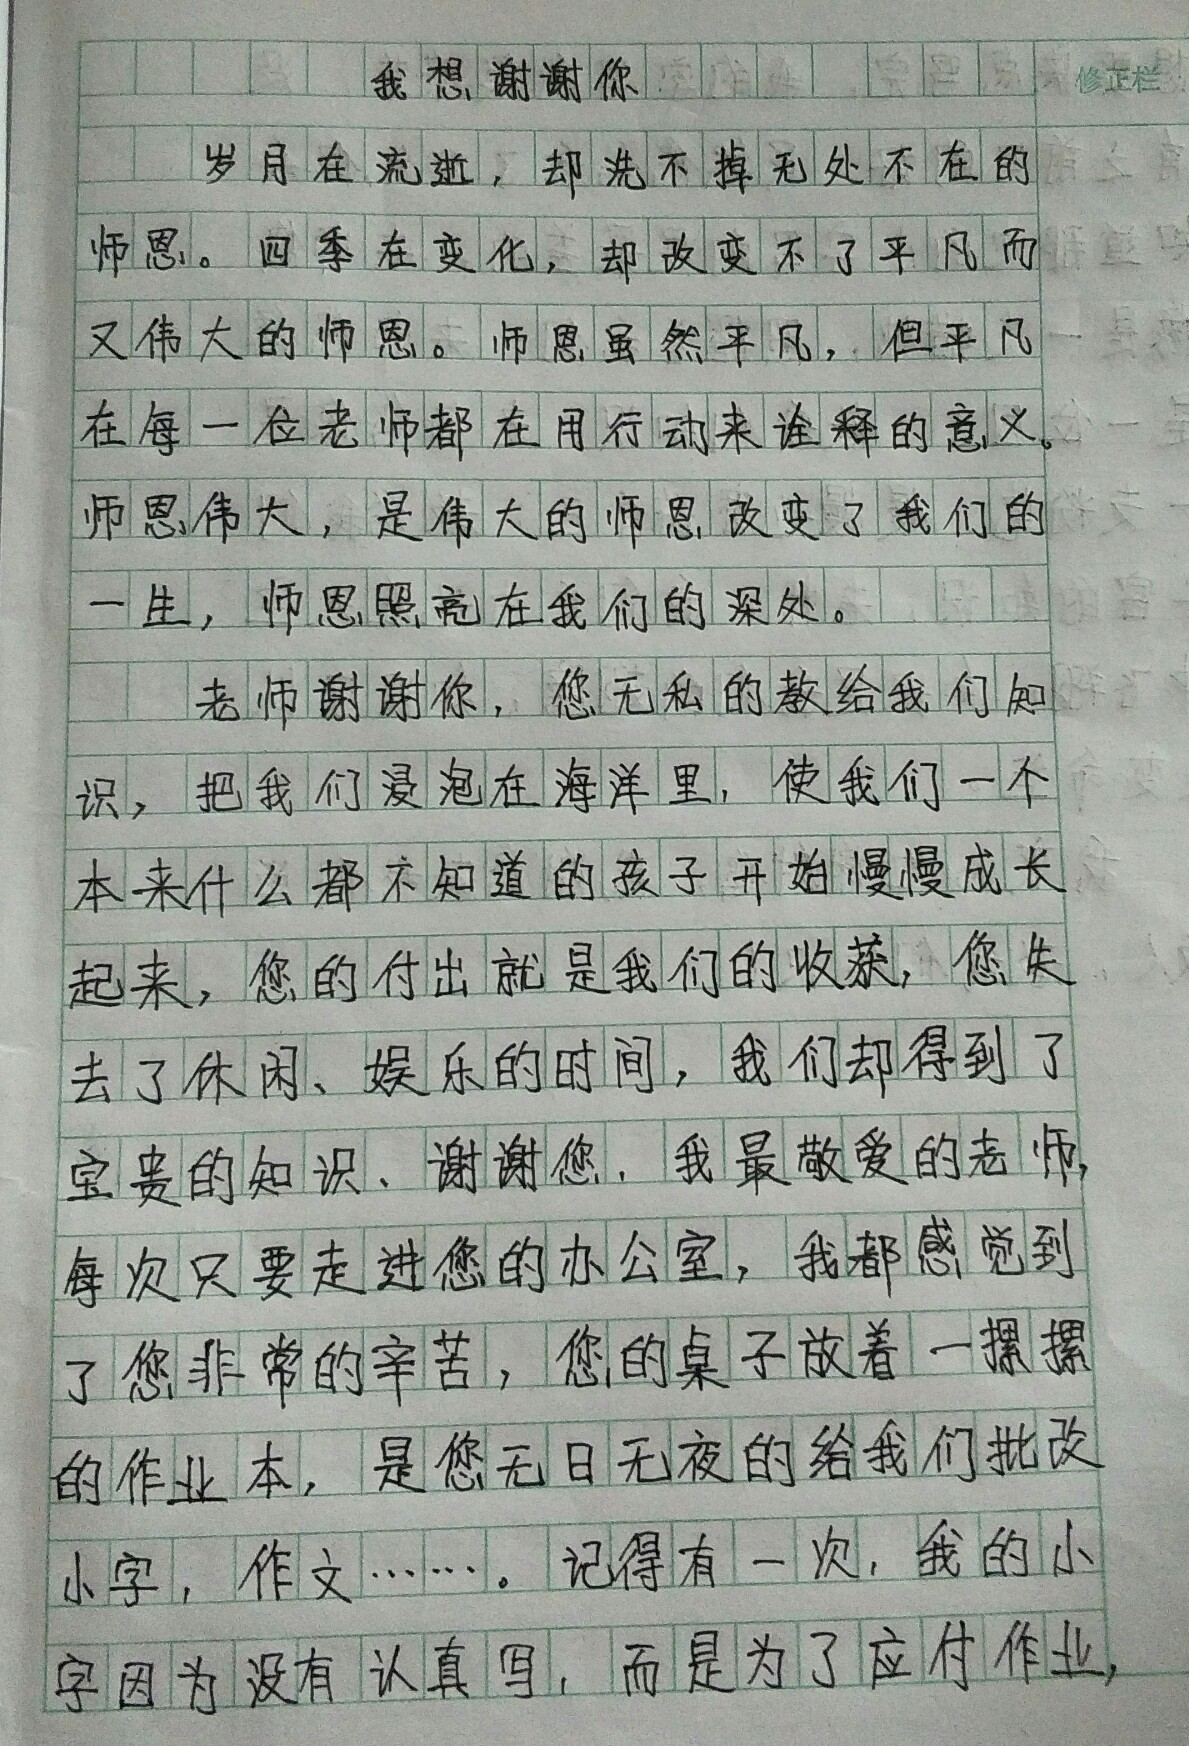 我想谢谢你
修正栏
岁月在流逝，却洗不掉无处不在的
师恩。四季在变化，却改变不了平凡而
又伟大的师恩。师恩虽然平凡，但平凡
在每一位老师都在用行动来诠释的意义。
师恩伟大，是伟大的师恩改变了我们的
一生，师恩照亮在我们的深处。
老师谢谢你，您无私的教给我们知
识，把我们浸泡在海洋里，使我们一个
本来什么都不知道的孩子开始慢慢成长
起来，您的付出就是我们的收获，您失
去了休闲、娱乐的时间，我们却得到了
宝贵的知识、谢谢您，我最敬爱的老师，
每次只要走进您的办公室，我都感觉到
了您非常的辛苦，您的桌子放着一摞摞
的作业本，是您无日无夜的给我们批改
小字，作文……。记得有一次，我的小
字因为没有认真写，而是为了应付作业，